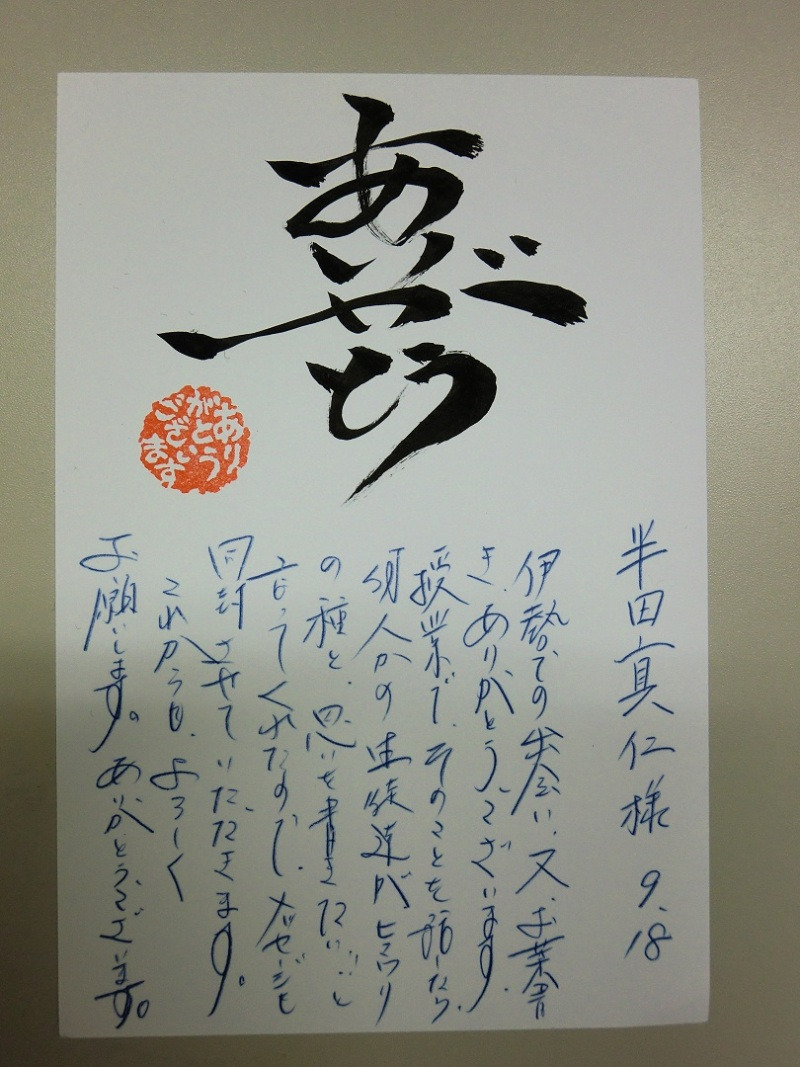 ありがとう
あり
がとう
ござい
ます
半田真仁様 9.18
伊勢での出会い、又、お葉書
き、ありがとうございます。
授業で、そのことを話したら、
何人かの生徒達がヒマワリ
の種と、思いを書きたい…と
言ってくれたので、メッセージも
同封させていただきます。
これからも、よろしく
お願いします。ありがとうございます。